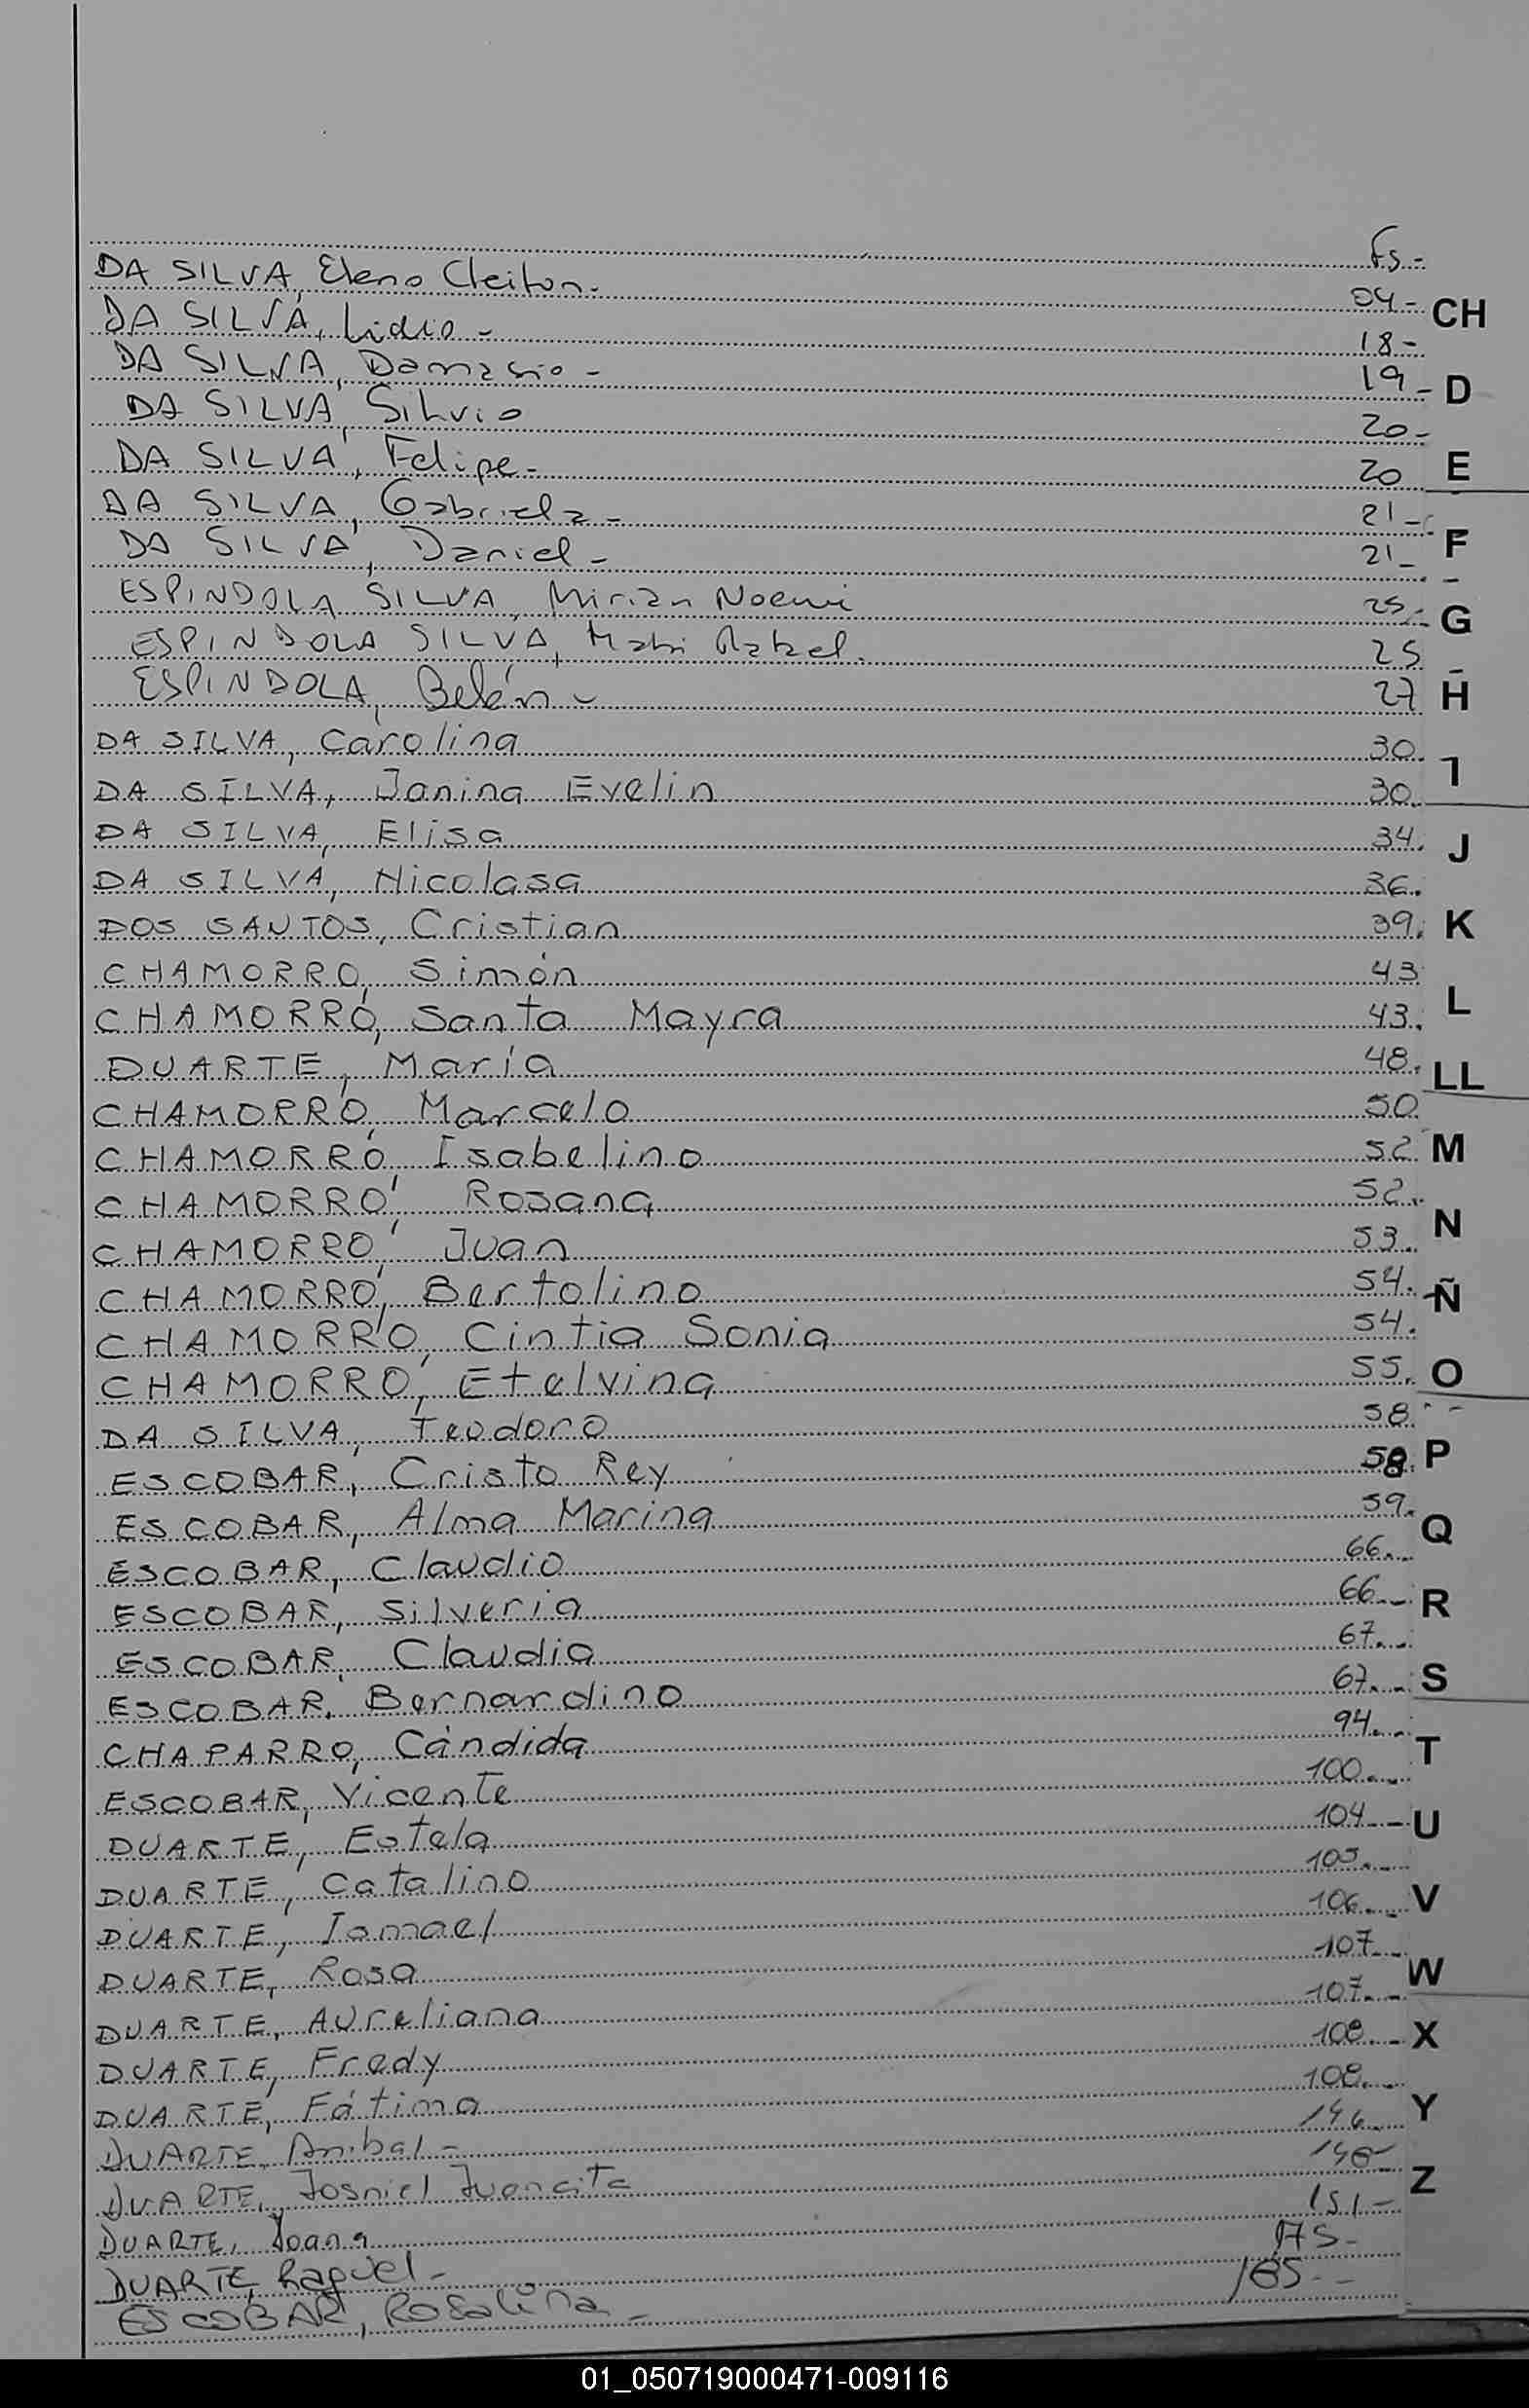 Fs-
DA SILVA, Eleno Cleiton- 04-
DA SILVA, Lidio - 18-
DA SILVA, Damasio - 19-
DA SILVA, Silvio 20-
DA SILVA, Felipe- 20
DA SILVA, Gabriela - 21-
DA SILVA, Daniel - 21-
ESPINDOLA SILVA, Mirian Noemi 25-
ESPINDOLA SILVA, 25
ESPINDOLA, Belén - 27
DA SILVA, Carolina 30.
DA SILVA, Janina Evelin 30.
DA SILVA, Elisa 34.
DA SILVA, Nicolasa 36.
DOS SANTOS, Cristian 39.
CHAMORRO, Simón 43
CHAMORRO, Santa Mayra 43.
DUARTE, María 48.
CHAMORRO, Marcelo 50
CHAMORRO, Isabelino 52
CHAMORRO, Rosana 52.
CHAMORRO, Juan 53.
CHAMORRO, Bertolino 54.
CHAMORRO, Cintia Sonia 54.
CHAMORRO, Etelvina 55.
DA SILVA, Teodoro 58
ESCOBAR, Cristo Rey 58.
ESCOBAR, Alma Marina 59.
ESCOBAR, Claudio 66.
ESCOBAR, Silveria 66
ESCOBAR, Claudia 67.
ESCOBAR, Bernardino 67.
CHAPARRO, Cándida 94.
ESCOBAR, Vicente 100.
DUARTE, Estela 104
DUARTE, Catalino 105.
DUARTE, Ismael 106.
DUARTE, Rosa 107
DUARTE, Aureliana 107.
DUARTE, Fredy 108
DUARTE, Fátima 108.
DUARTE, Anibal - 146
DUARTE, 148-
DUARTE, Joana 151-
DUARTE, Raquel - 175-
ESCOBAR, Rosalina - 185-
CH
D
E
F
G
H
I
J
K
L
LL
M
N
Ñ
O
P
Q
R
S
T
U
V
W
X
Y
Z
01_050719000471-009116